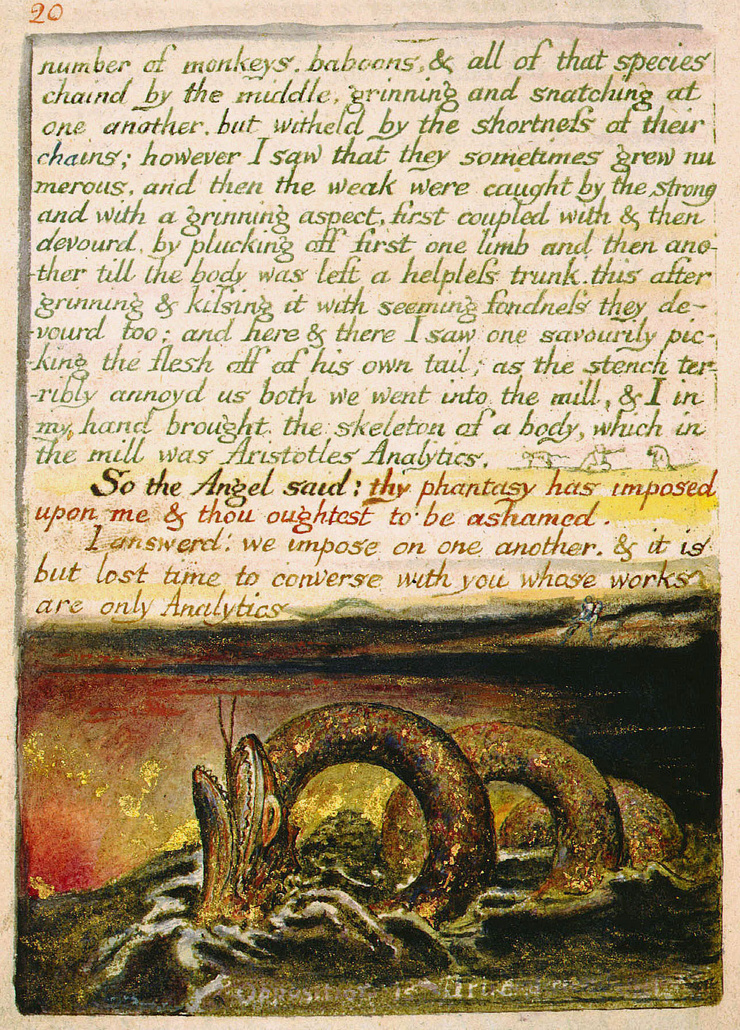 20
number of monkeys, baboons, & all of that species
chaind by the middle, grinning and snatching at
one another, but witheld by the shortness of their
chains; however I saw that they sometimes grew nu
merous, and then the weak were caught by the strong
and with a grinning aspect, first coupled with & then
devourd, by plucking off first one limb and then ano-
ther till the body was left a helpless trunk. this after
grinning & kissing it with seeming fondness they de-
vourd too; and here & there I saw one savourily pic-
king the flesh off of his own tail; as the stench ter-
-ribly annoyd us both we went into the mill, & I in
my hand brought the skeleton of a body, which in
the mill was Aristotles Analytics.
So the Angel said: thy phantasy has imposed
upon me & thou oughtest to be ashamed.
I answerd: we impose on one another, & it is
but lost time to converse with you whose works
are only Analytics